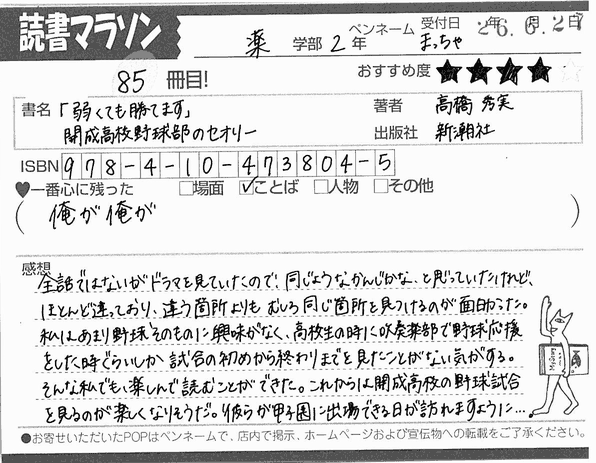 読書マラソン
薬 学部 2 年 ペンネーム まっちゃ 受付日 26.6.27
85 冊目!
おすすめ度 ★★★★☆
書名 「弱くても勝てます」 著者 高橋 秀実
開成高校野球部のセオリー 出版社 新潮社
ISBN 978-4-10-473804-5
♥一番心に残った □場面 ☑ことば □人物 □その他
( 俺が俺が )
感想
全話ではないがドラマを見ていたので、同じようなかんじかな、と思っていたけれど、
ほとんど違っており、違う箇所よりもむしろ同じ箇所を見つけるのが面白かった。
私はあまり野球そのものに興味がなく、高校生の時に吹奏楽部で野球応援
をした時ぐらいしか試合の初めから終わりまでを見たことがない気がする。
そんな私でも、楽しんで読むことができた。これからは開成高校の野球試合
を見るのが楽しくなりそうだ。彼らが甲子園に出場できる日が訪れますように…
●お寄せいただいたPOPはペンネームで、店内で掲示、ホームページおよび宣伝物への転載をご了承ください。